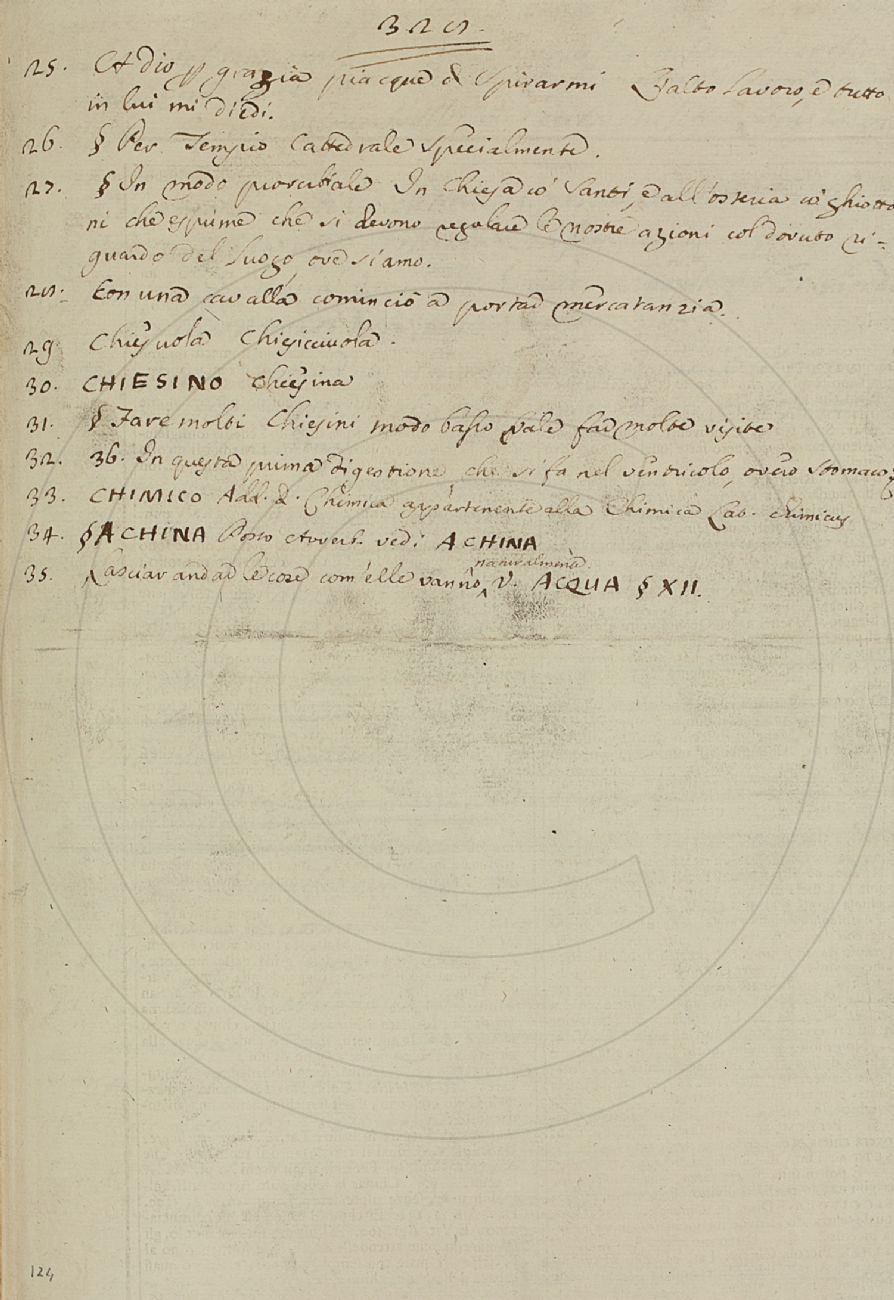 328.
25. A dio p grazia piacque di spirarmi L'alto lavoro, e tutto
in lui mi diedi.
26. § Per Tempio Cattedrale specialmente.
27. § In modo proverbiale In Chiesa co' Santi, e all'osteria co' ghiotto
ni che espime che si devono regolare le nostre azioni col dovuto ri=
guardo del luogo, ove siamo.
28. Con una cavalla cominciò a portar mercatanzia.
29. Chiesuola Chiesicciuola.
30. CHIESINO Chiesina
31. § Fare molti Chiesini modo basso vale far molte visite
32. 36. In questa prima digestione, che si fa nel ventricolo, overo stomaco;
33. CHIMICO Add. Di Chimica appartenente alla Chimica Lat. chimicus
34. § A CHINA Posto avverb. vedi A CHINA
naturalmente.
35. Lasciar andar le cose com'elle vanno, V. ACQUA § XII.
124